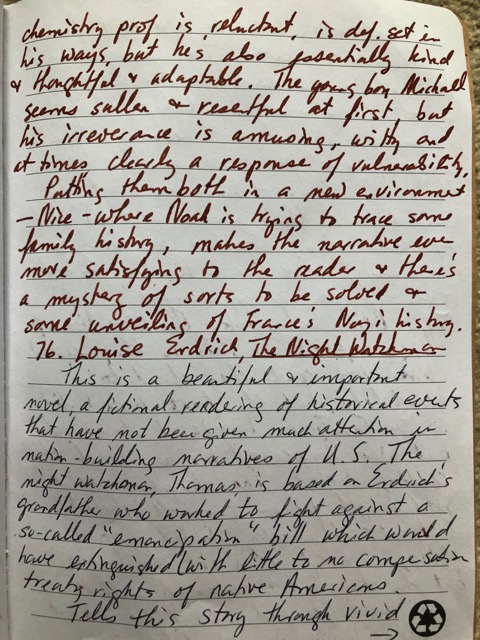 chemistry prof is reluctant, is def. set in
his ways, but he's also essentially kind
& thoughtful & adaptable. The young boy Michael
seems sullen & resentful at first, but
his irreverance is amusing, witty and
at times clearly a response of vulnerability.
Putting them both in a new environment
– Nice – where Noah is trying to trace some
family history, makes the narrative even
more satisfying to the reader & there's
a mystery of sorts to be solved &
some unveiling of France's Nazi history.
76. Louise Erdrich, The Night Watchman
This is a beautiful & important
novel, a fictional rendering of historical events
that have not been given much attention in
nation-building narratives of U.S. The
night watchman, Thomas, is based on Erdrich's
grandfather who worked to fight against a
so-called "emancipation" bill which would
have extinguished (with little to no compensation
treaty rights of native Americans.
Tells this story through vivid
→